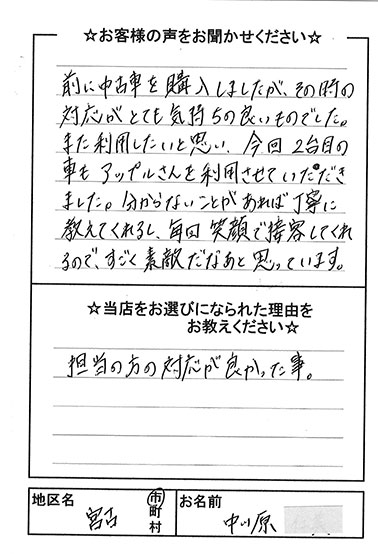 ☆お客様の声をお聞かせください☆
前に中古車を購入しましたが、その時の
対応がとても気持ちの良いものでした。
また利用したいと思い、今回2台目の
車もアップルさんを利用させていただき
ました。分からないことがあれば丁寧に
教えてくれるし、毎回笑顔で接客してくれ
るので、すごく素敵だなあと思っています。
☆当店をお選びになられた理由を
お教えください☆
担当の方の対応が良かった事。
地区名
宮古
市
町
村
お名前
中川原